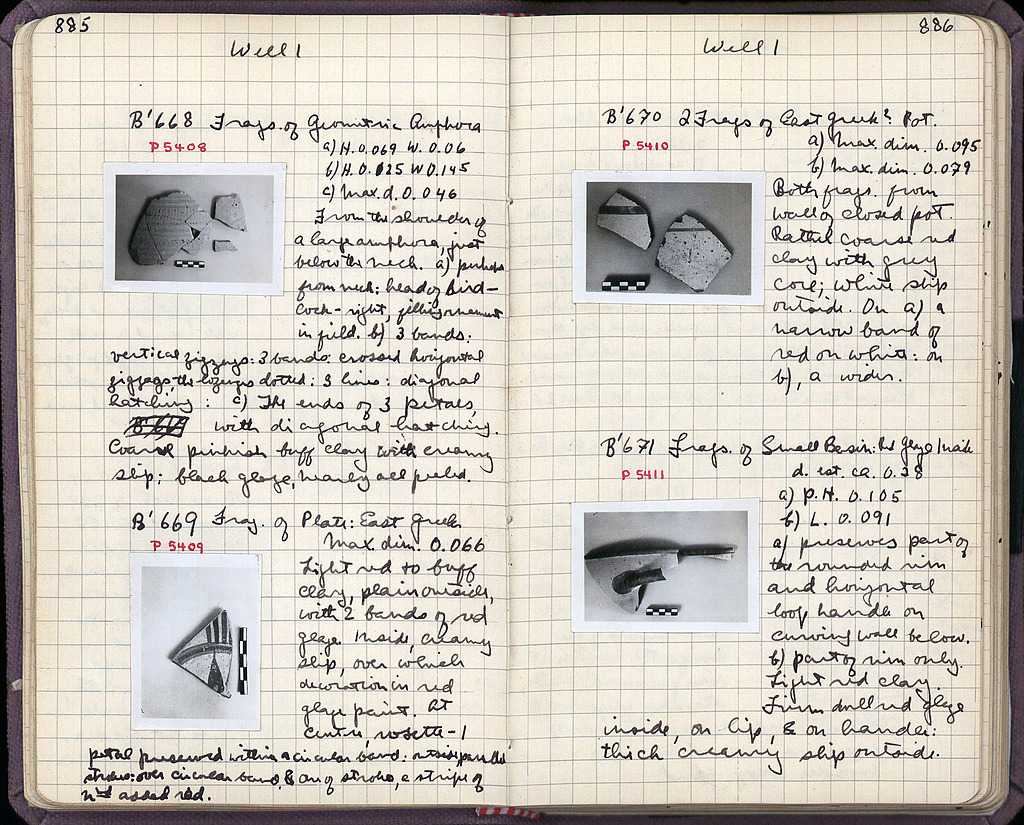 885
Well 1
B'668 Frags. of Geometric Amphora
P 5408
a) H. 0.069 W. 0.06
b) H. 0.125 W 0.145
c) Max. d. 0.046
From the shoulder of
a large amphora, just
below the neck. a) perhaps
from neck: head of bird–
cock–right, filling ornament
in field. b) 3 bands:
vertical zigzags: 3 bands: crossed horizontal
zigzags, the lozenges dotted: 3 lines: diagonal
hatching: c) The ends of 3 petals,
with diagonal hatching.
Coarse pinkish buff clay with creamy
slip; black glaze, nearly all peeled.
B'669 Frag. of Plate: East Greek
P 5409
Max. dim. 0.066
Light red to buff
clay, plain outside,
with 2 bands of red
glaze. Inside, creamy
slip, over which
decoration in red
glaze paint. At
centre, rosette–1
petal preserved within a circular band: outside, parallel
strokes: over circular band, & one of strokes, a stripe of
added red.
886
Well 1
B'670 2 Frags of East Greek? Pot.
P 5410
a) Max. dim. 0.095
b) Max. dim. 0.079
Both frags. from
wall of closed pot.
Rather coarse red
clay with grey
core; white slip
outside. On a) a
narrow band of
red on white: on
b), a wider.
B'671 Frags. of Small Basin: Red Glaze Inside
P 5411
d. est. ca. 0.38
a) P.H. 0.105
b) L. 0.091
a) preserves part of
the rounded rim
and horizontal
loop handle on
curving wall below.
b) part of rim only.
Light red clay.
Firm dull red glaze
inside, on lip, & on handle:
thick creamy slip outside.